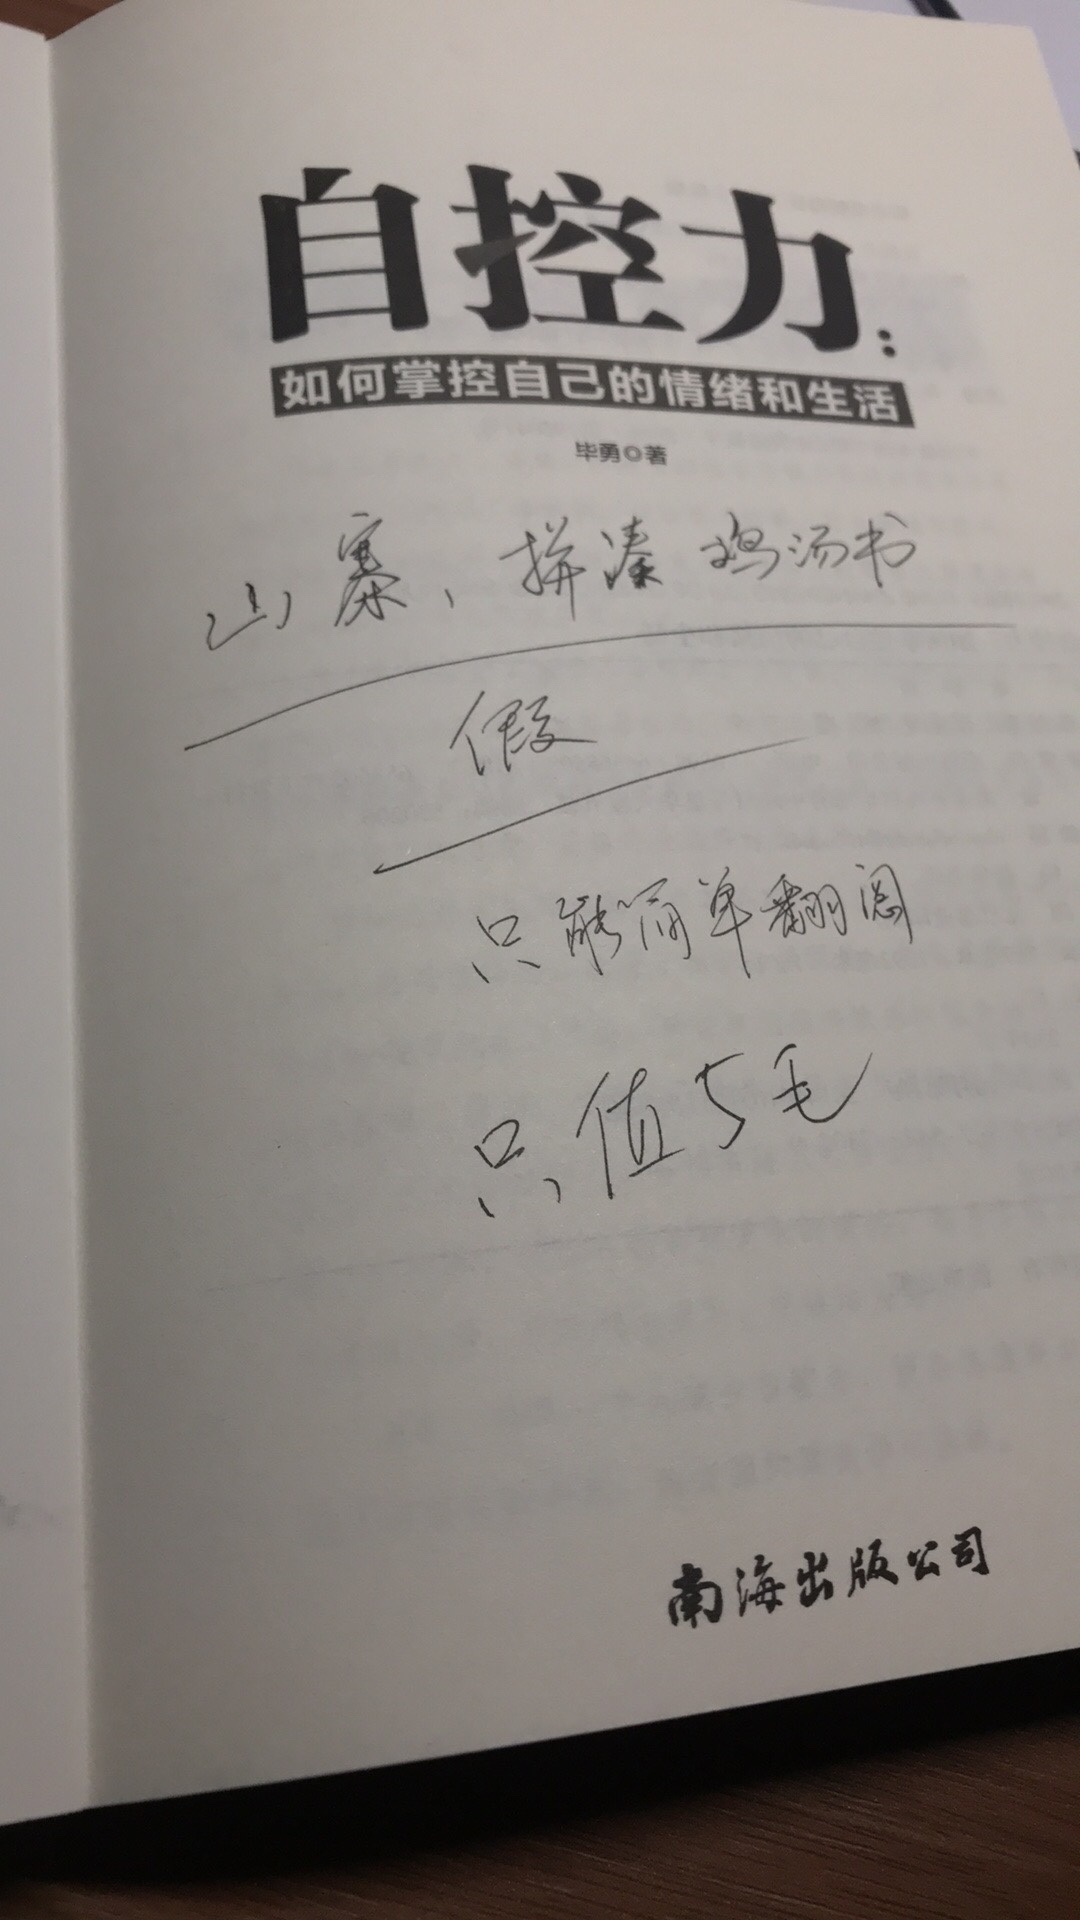 自控力：
如何掌控自己的情绪和生活
毕勇◎著
山寨、拼凑鸡汤书
假
只能简单翻阅
只值5毛
南海出版公司